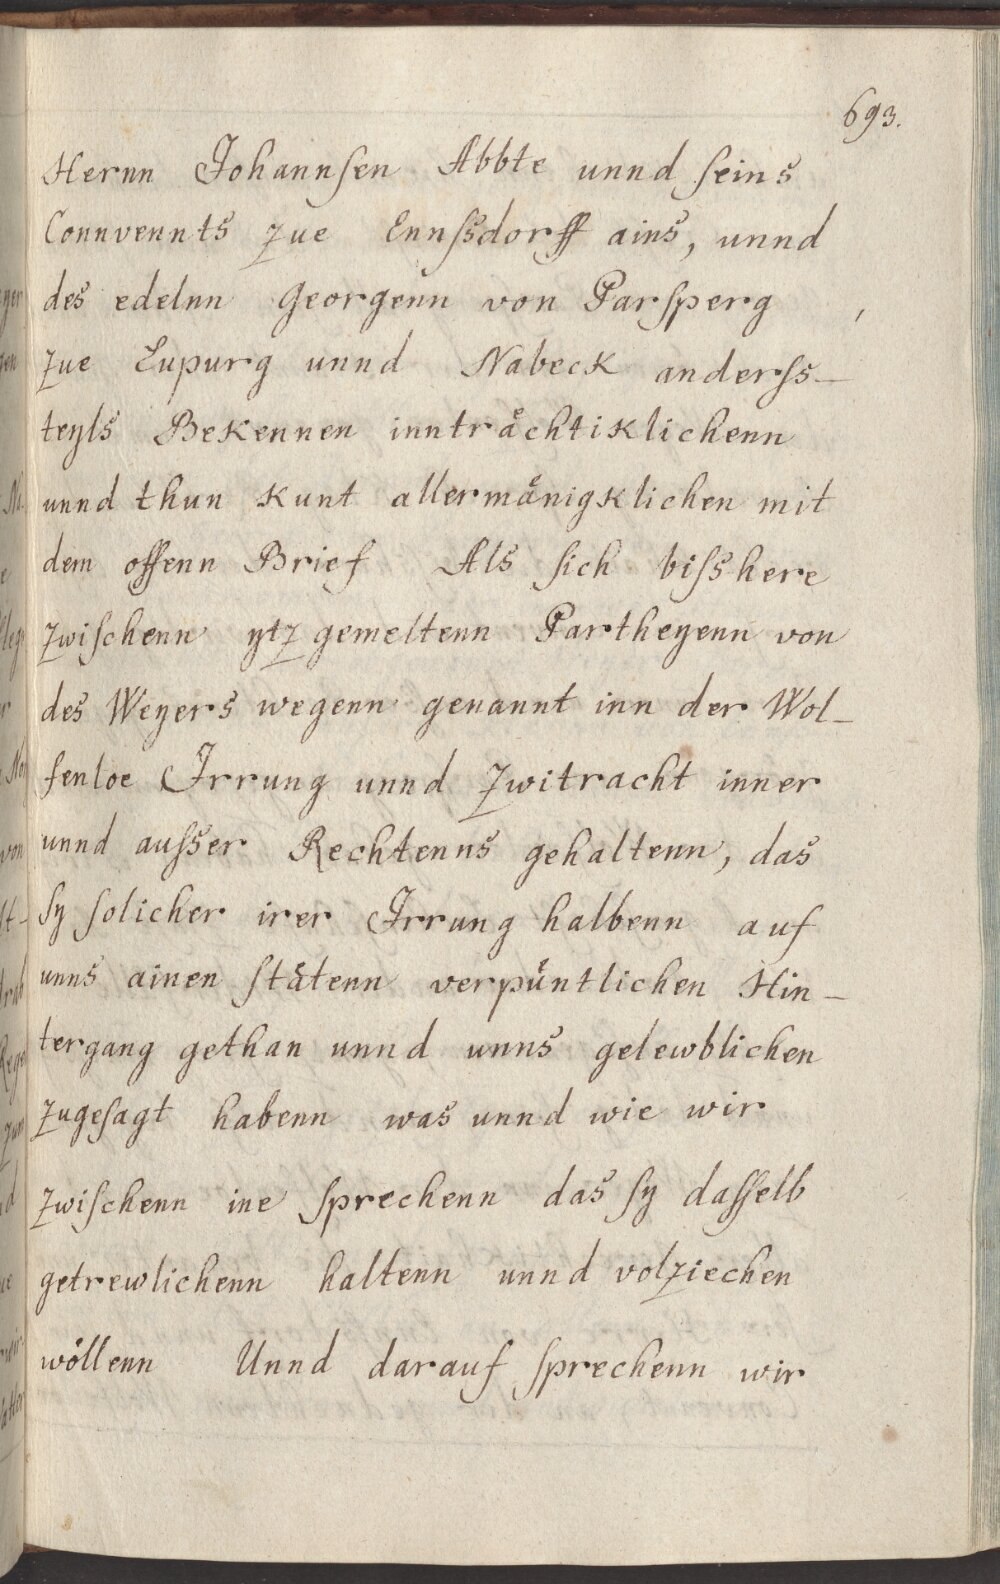 693.
Hernn Johannſen Abbte unnd ſeins
Connvennts zue Ennſsdorff ains, unnd
des edelnn Georgenn von Parſperg
zue Lupurg unnd Nabeck anderſs-
teyls Bekennen innträchtiklichenn
unnd thun kunt allermänigklichen mit
dem offenn Brief Als ſich biſshere
zwiſchenn ytz gemeltenn Partheyenn von
des Weyers wegenn genannt inn der Wol-
fenloe Irrung unnd Zwitracht inner
unnd auſser Rechtenns gehaltenn, das
ſy ſolicher irer Irrung halbenn auf
unns ainen ſtätenn verpüntlichen Hin-
tergang gethan unnd unns gelewblichen
zugeſagt habenn was unnd wie wir
zwiſchenn ine ſprechenn das ſy daſſelb
getrewlichenn haltenn unnd volziechen
wöllenn Unnd darauf ſprechenn wir